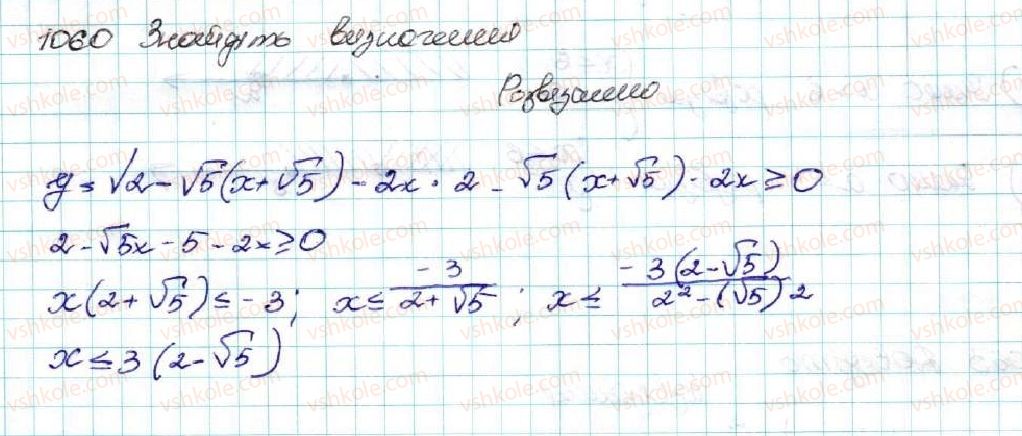 1060 Знайдіть визначення
Розвязання
y = √2 - √5(x+√5) - 2x · 2 - √5(x+√5) - 2x ≥ 0
2 - √5x - 5 - 2x ≥ 0
x(2+√5) ≤ -3; x ≤ -3/(2+√5); x ≤ -3(2-√5)/(2² - (√5)2)
x ≤ 3(2-√5)